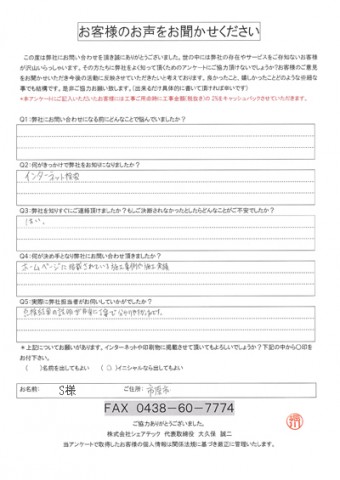 お客様のお声をお聞かせください
この度は弊社にお問い合わせを頂き誠にありがとうございました。世の中には弊社の存在やサービスをご存知ないお客様
が沢山いらっしゃいます。その方たちに弊社をよく知って頂くためのアンケートにご協力頂けないでしょうか？お客様のご意見
をお聞かせいただき今後の活動に反映させていただきたいと考えております。良かったこと、嬉しかったことどのような些細な
事でも結構です。是非ご協力お願い致します。（出来るだけ具体的に書いて頂ければ幸いです）
＊本アンケートにご記入いただいたお客様には工事ご用命時に工事金額（税抜き）の2％をキャッシュバックさせていただきます。
Q1：弊社にお問い合わせになる前にどんなことで悩んでいましたか？
Q2：何がきっかけで弊社をお知りになりましたか？
インターネット検索
Q3：弊社を知りすぐにご連絡頂けましたか？もしご決断されなかったとしたらどんなことがご不安でしたか？
はい。
Q4：何が決め手となり弊社にお問い合わせ頂きましたか？
ホームページに掲載されている施工事例や施工実績
Q5：実際に弊社担当者がお伺いしていかがでしたか？
点検結果の説明が非常に丁寧で分かりやすかったです。
＊上記についてお願いがあります。インターネットや印刷物に掲載させて頂いてもよろしいでしょうか？下記の中から〇印を
お付下さい。
（　）名前を出してもよい　（〇）イニシャルなら出してもよい
お名前： S様 ご住所： 市原市
FAX 0438-60-7774
ご協力ありがとうございました。
株式会社シェアテック 代表取締役 大久保 誠二
当アンケートで取得したお客様の個人情報は関係法規に基づき厳正に管理いたします。